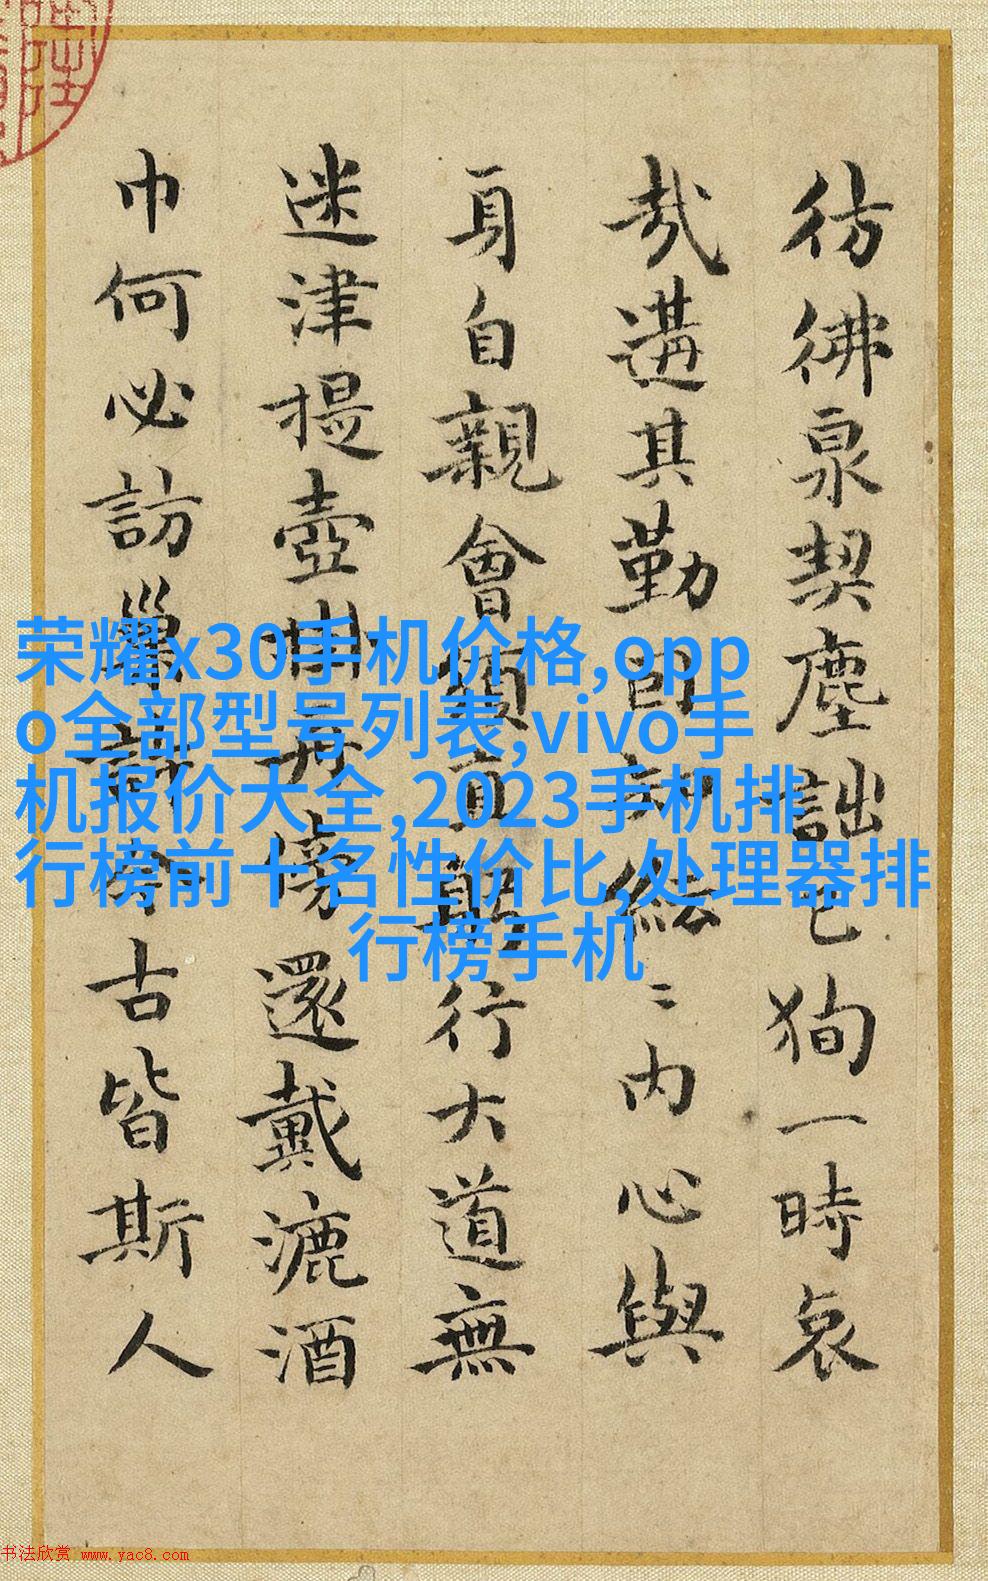 彷彿泉契塵詘已狥一時哀
哉遘其勤絃〻内心與
身自親會須直行大道無
迷津提壺傍還戴漉酒
巾何必訪巢許今古皆斯人
荣耀x30手机价格,opp
o全部型号列表,vivo手
机报价大全,2023手机排
行榜前十名性价比,处理器排
行榜手机
书法欣赏 www.yac8.com